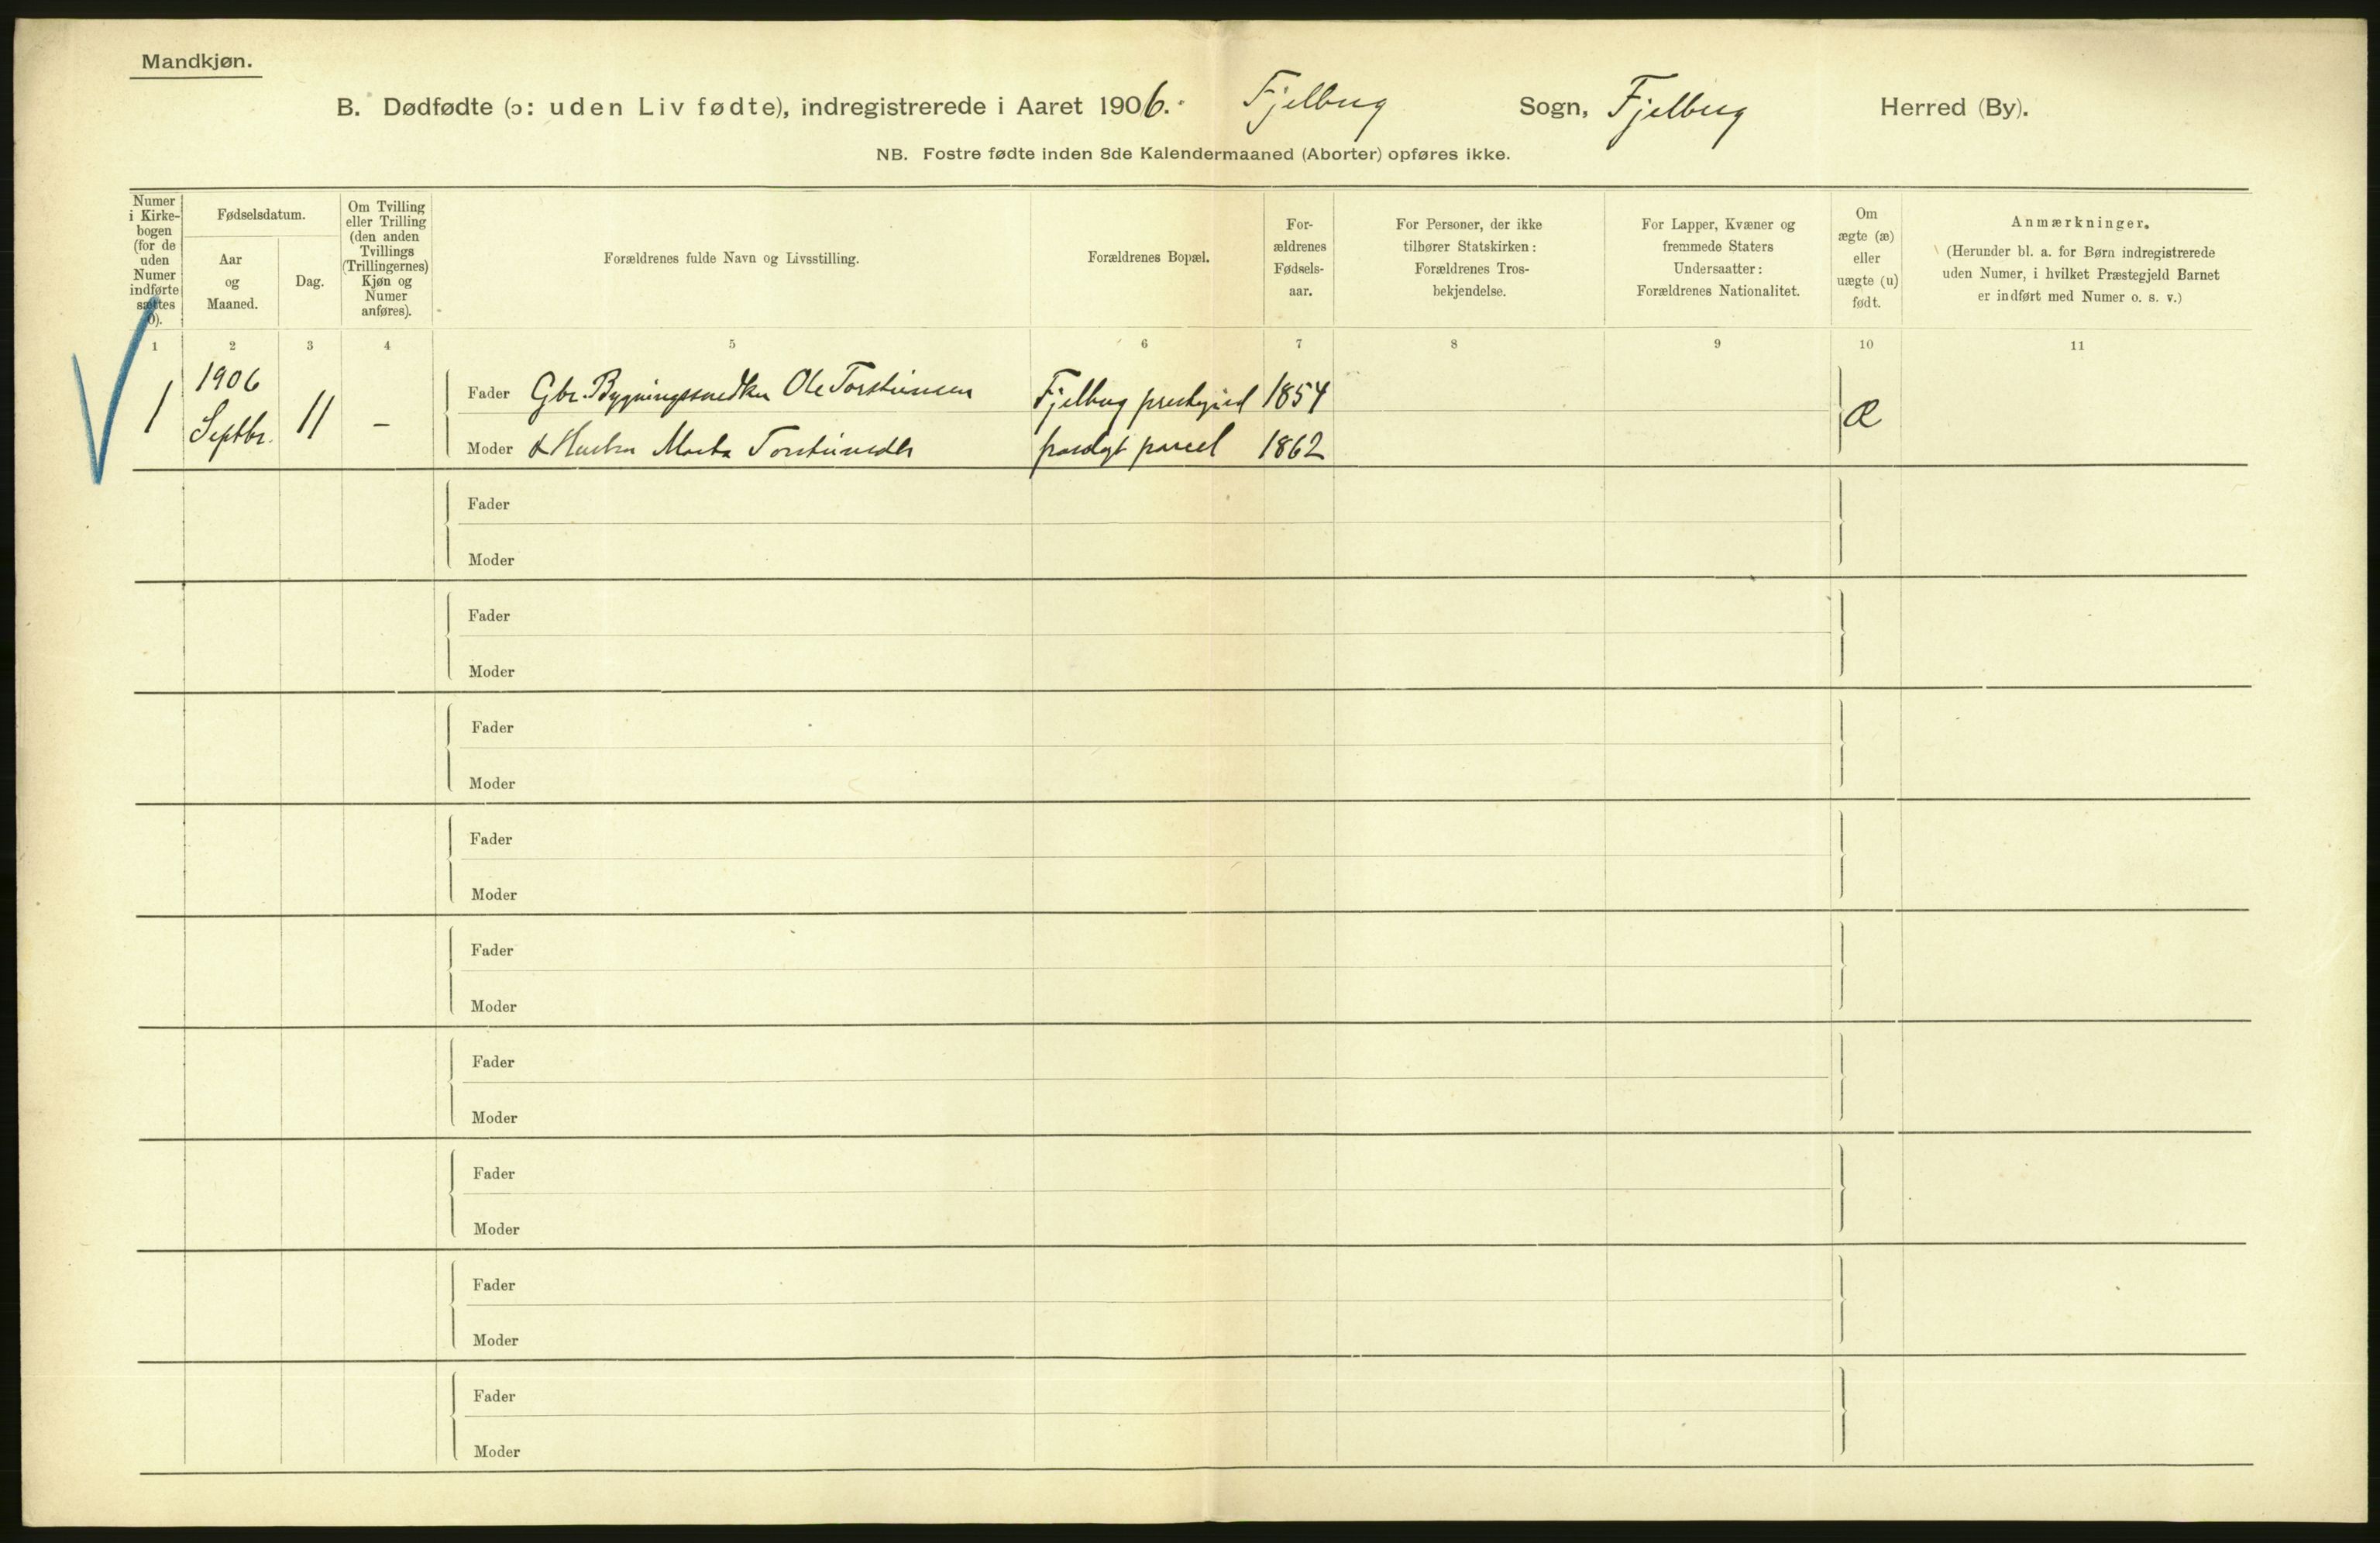 Mandkjøn.
B. Dødfødte (ɔ: uden Liv fødte), indregistrerede i Aaret 1906. Fjelberg Sogn, Fjelberg Herred (By).
NB. Fostre fødte inden 8de Kalendermaaned (Aborter) opføres ikke.
Numer
i Kirke-
bogen
(for de
uden
Numer
indførte
sættes
0).
Fødselsdatum.
Aar
og
Maaned.
Dag.
Om Tvilling
eller Trilling
(den anden
Tvillings
(Trillingernes)
Kjøn og
Numer
anføres).
Forældrenes fulde Navn og Livsstilling.
Forældrenes Bopæl.
For-
ældrenes
Fødsels-
aar.
For Personer, der ikke
tilhører Statskirken:
Forældrenes Tros-
bekjendelse.
For Lapper, Kvæner og
fremmede Staters
Undersaatter:
Forældrenes Nationalitet.
Om
ægte (æ)
eller
uægte (u)
født.
Anmærkninger.
(Herunder bl. a. for Børn indregistrerede
uden Numer, i hvilket Præstegjeld Barnet
er indført med Numer o. s. v.)
1 2 3 4 5 6 7 8 9 10 11
1 1906
Septbr. 11 –
Fader Gbr. Bygningssnedker Ole Torsteinsen Fjelberg 1854
Moder & Hustru Marta Torsteinsdtr parcel 1862
Æ
Fader
Moder
Fader
Moder
Fader
Moder
Fader
Moder
Fader
Moder
Fader
Moder
Fader
Moder
Fader
Moder
Fader
Moder